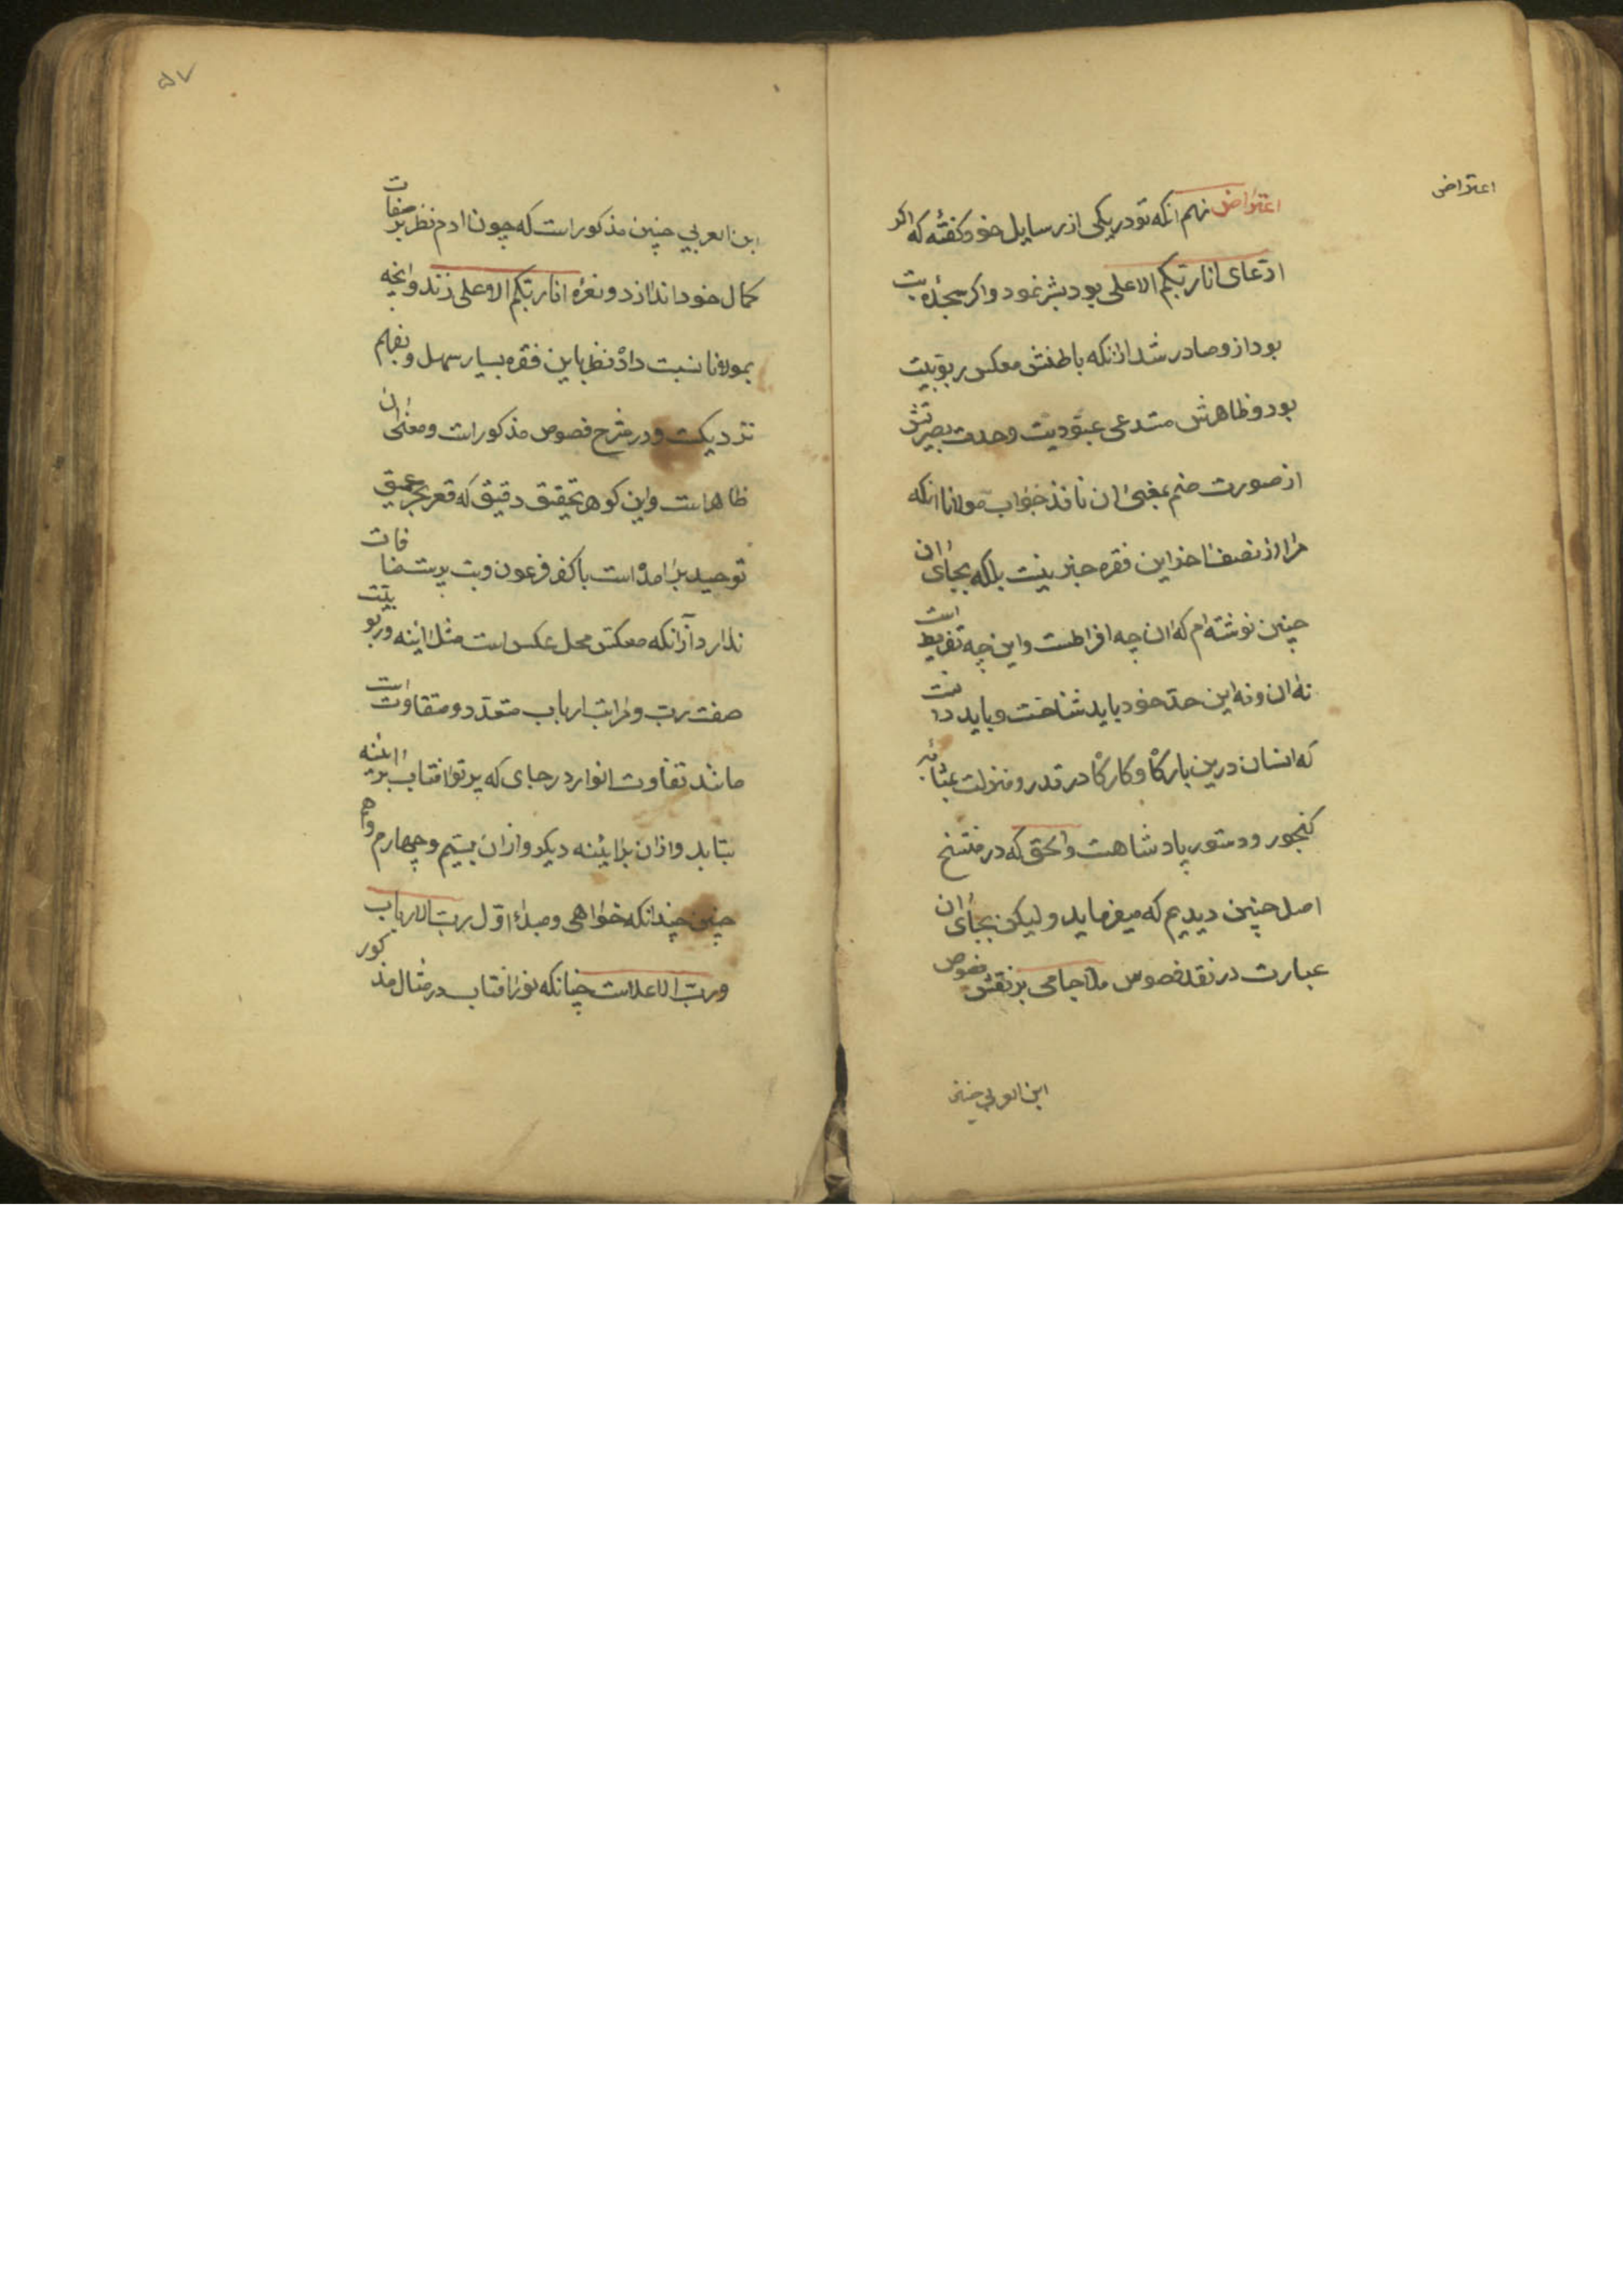 اعتراض
اعتراض نهم انکه تو در یکی از رسایل خود کفتهٔ که اکر
ادعای انا ربکم الاعلی بود بشر نمود و اکر سجدهٔ بت
بود ازو صادر شد ازانکه باطنش معکس ربوبیت
بود و ظاهرش متدعی عبودیت وحدت بصیرتش
از صورت صنم بمعنی ان نافذ جواب مولانا انکه
مرا از نصف اخذ این فقره خبر نیست بلکه بجای ان
چنین نوشته ام که ان چه افراطست و این چه تفریط است
نه ان و نه این حد خود باید شناخت و باید دانست
که انسان درین بارکاه و کارکاه در قدر و منزلت بمثابه
کنجور و دستور پادشاهست والحق که در منتسخ
اصل چنین دیدیم که میفرماید و لیکن بجای ان
عبارت در نقد نصوص ملا جامی بر نقش فصوص
ابن العربي چنین
۵۷
ابن العربي چنین مذکور است که چون ادم نظر بر صفات
کمال خود اندازد و نعرهٔ انا ربکم الاعلی زند وانچه
بمولانا نسبت داده نظر باین فقره بسیار سهل و بفهم
نزدیکست و در شرح فصوص مذکور است و معنی ان
ظاهر است و این کوهر تحقیق دقیق که قعر بحر عمیق
توحید برامده است با کفر فرعون و بت پرست منافات
ندارد ازانکه معکس محل عکس است مثل اینه و ربوبیت
صفت رب و مراتب ارباب متعدد و متفاوت است
مانند تفاوت انوار در جای که پرتو افتاب بر ائینه
بتابد و ازان بر ائینه دیکر و ازان بسیم و چهارم و هم
چنین چندانکه خواهی و مبداء اول رب الارباب
و رب الاعلاست چنانکه نور افتاب در مثال مذکور